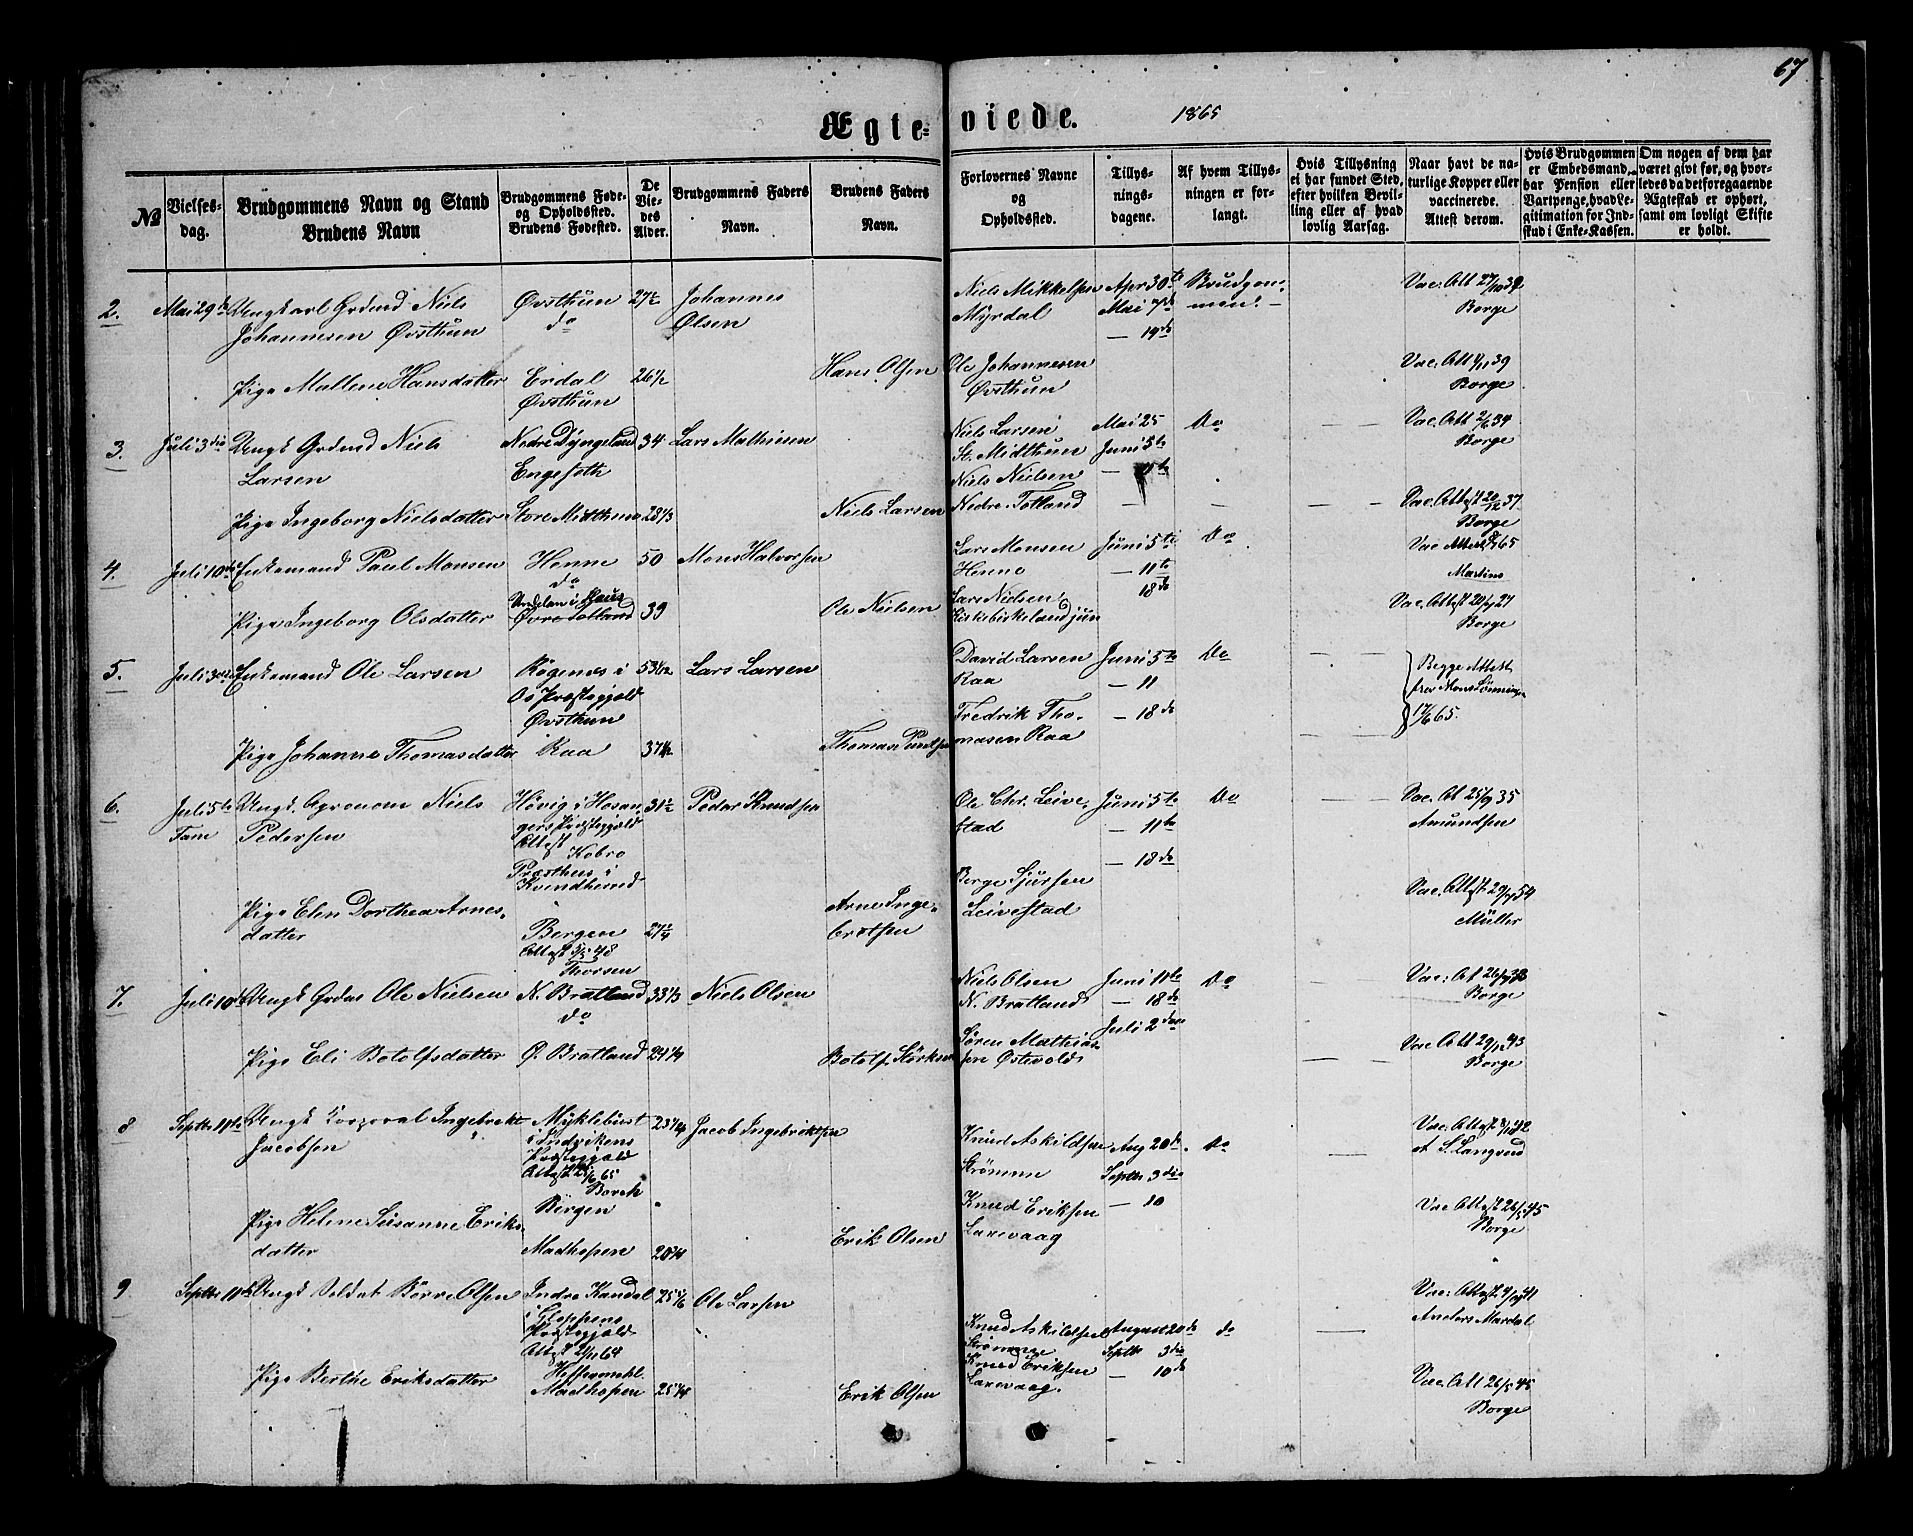 67
Ægteviede. 1865
№
Vielses-
dag.
Brudgommens Navn og Stand
Brudens Navn
Brudgommens Føde-
og Opholdssted.
Brudens Fødested.
De
Vie-
des
Alder.
Brudgommens Faders
Navn.
Brudens Faders
Navn.
Forlovernes Navne
og
Opholdssted.
Tillys-
nings-
dagene.
Af hvem Tillys-
ningen er for-
langt.
Hvis Tillysning
ei har fundet Sted,
efter hvilken Bevil-
ling eller af hvad
lovlig Aarsag.
Naar havt de na-
turlige Kopper eller
vaccinerede.
Attest derom.
Hvis Brudgommen
er Embedsmand,
har Pension eller
Vartpenge, hvad Le-
gitimation for Ind-
skud i Enke-Kassen.
Om nogen af dem har
været givt før, og hvor-
ledes da det foregaaende
Ægteskab er ophørt,
samt om lovligt Skifte
er holdt.
2.
Mai 29de
Ungkarl Grdmd Niels
Johannesen Øvsthun
Øvsthun
do
27½
Johannes
Olsen
Niels Mikkelsen
Myrdal
Apr 30te
Mai 7de
— 14de
Brudgom-
men.
Vac. Att 27/10 39
Borge
Pige Malene Hansdatter
Erdal
Øvsthun
26½
Hans Olsen
Ole Johannesen
Øvsthun
Vac. Att 4/11 39
Borge
3.
Juli 3die
Ungk Grdmd Niels
Larsen
Nedre Dyngeland
Engeseth
34
Lars Mathiesen
Niels Larsen
St. Midthun
Niels Nielsen
Nedre Totland
Mai 25
Juni 5te
— 11te
Do
Vac. Att 2/6 34
Borge
Pige Ingeborg Nielsdatter
Store Midthun
28⅓
Niels Larsen
Vac. Attest 20/12 37
Borge
4.
Juli 10de
Enkemand Paul Monsen
Henne
do
50
Mons Halvorsen
Lars Monsen
Henne
Juni 5te
— 11te
18de
Do
Vac Attest 65
Martins
Pige Ingeborg Olsdatter
Undelan i Haus
Øvre Totland
39
Ole Nielsen
Lars Nielsen
Kirkebirkeland jun
Vac. Attest 20/9 27
Borge
5.
Juli 3die
Enkemand Ole Larsen
Røgenes i
Os Præstegjæld
Øvsthun
53
Lars Larsen
David Larsen
Raa
Fredrik Tho-
masen Raa
Juni 5te
— 11
— 18de
Do
Begge Attest
fra Mons Lønningen
17/6 65.
Pige Johanne Thomasdatter
Raa
37½
Thomas
6.
Juli 5te
Fane
Ungk. Agronom Niels
Pedersen
Høvig i Hosan-
gers Præstegjæld
Attest
Kobro
Præsthus i
Kvindherred
31½
Peder Knudsen
Ole Chr. Leive-
stad
Juni 5te
— 11te
— 18de
Do
Vac. At 25/9 35
Amundsen
Pige Elen Dorthea Arnes-
datter
Bergen
Attest 3/5 48
Thorsen
27¼
Arne Inge-
brotsen
Børge Sjursen
Leivestad
Vac. Attest 29/9 54
Müller
7.
Juli 10de
Ungk Grdm Ole Nielsen
N. Bratland
do
33⅓
Niels Olsen
Niels Olsen
N. Bratland
Juni 11te
— 18de
Juli 2den
Do
Vac: At 26/9 33
Borge
Pige Eli Botolfsdatter
Ø. Bratland
24¼
Botolf Størksen
Søren Mathia-
sen Østevold
Vac Att 29/12 43
Borge
8
Septbr 11te
Ungk Korporal Ingebrekt
Jacobsen
Myklebust
i Indvikens
Præstegjæld
Attest 25/6 65
Borch
Bergen
23¼
Jacob Ingebriktsen
Knud Askildsen
Strømme
Aug 20de
Septbr 3die
— 10
Do
Vac. Attest 3/12 42
at S. Langsæd
Pige Helene Susanne Eriks-
datter
Madhopen
20¾
Erik Olsen
Knud Eriksen
Larevaag
Vac Attest 26/5 45
Borge
9
Septbr 11te
Ungk Soldat Børre Olsen
Indre Kandal
i Gloppens
Præstegjæld
Attest 21/11 64
25⅚
Ole Larsen
Knud Askildsen
Strømme
Knud Eriksen
Larevaag.
August 20de
Septbr 3die
— 10de
do
Vac: Attest 4/10 41
Anders Mardal
Pige Berthe Eriksdatter
Madhopen
25¼
Erik Olsen
Vac. Att 26/5 45
Borge